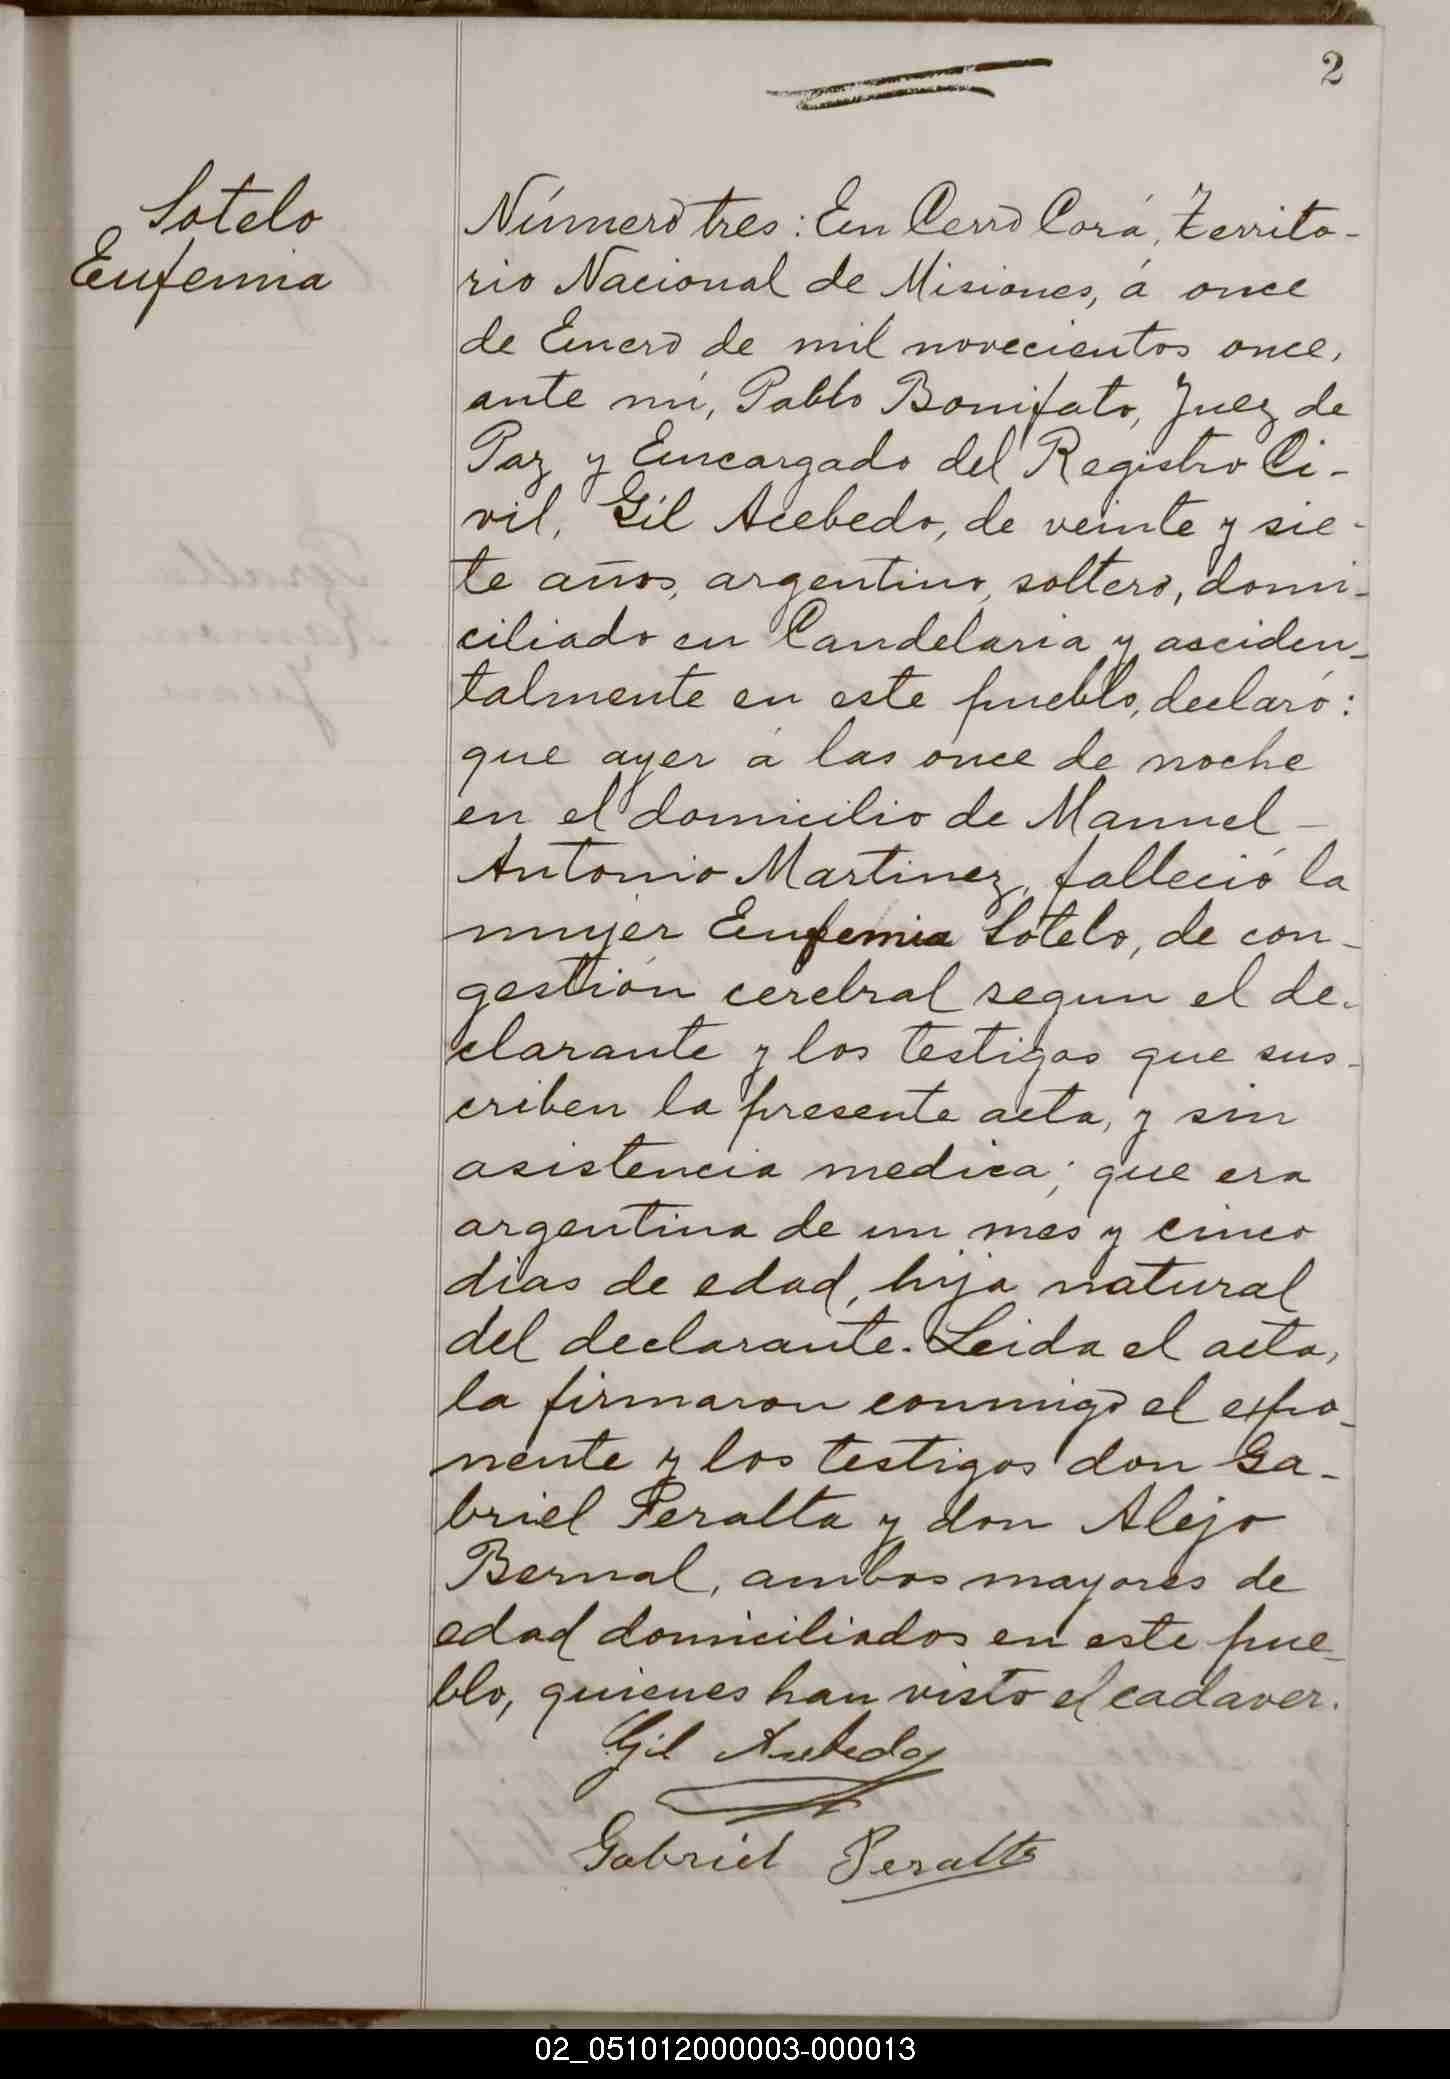 2
Sotelo
Eufemia
Número tres: En Cerro Corá, Territo-
rio Nacional de Misiones, á once
de Enero de mil novecientos once,
ante mí, Pablo Bonifato, Juez de
Paz y Encargado del Registro Ci-
vil, Gil Acebedo, de veinte y sie-
te años, argentino, soltero, domi-
ciliado en Candelaria y asciden-
talmente en este pueblo, declaró:
que ayer á las once de noche
en el domicilio de Manuel -
Antonio Martinez, falleció la
mujer Eufemia Sotelo, de con-
gestión cerebral segun el de-
clarante y los testigos que sus-
criben la presente acta, y sin
asistencia medica; que era
argentina de un mes y cinco
dias de edad, hija natural
del declarante. Leida el acta,
la firmaron conmigo el expo-
nente y los testigos don Ga-
briel Peralta y don Alejo
Bernal, ambos mayores de
edad domiciliados en este pue-
blo, quienes han visto el cadaver.
Gil Acebedo
Gabriel Peralta
02_051012000003-000013